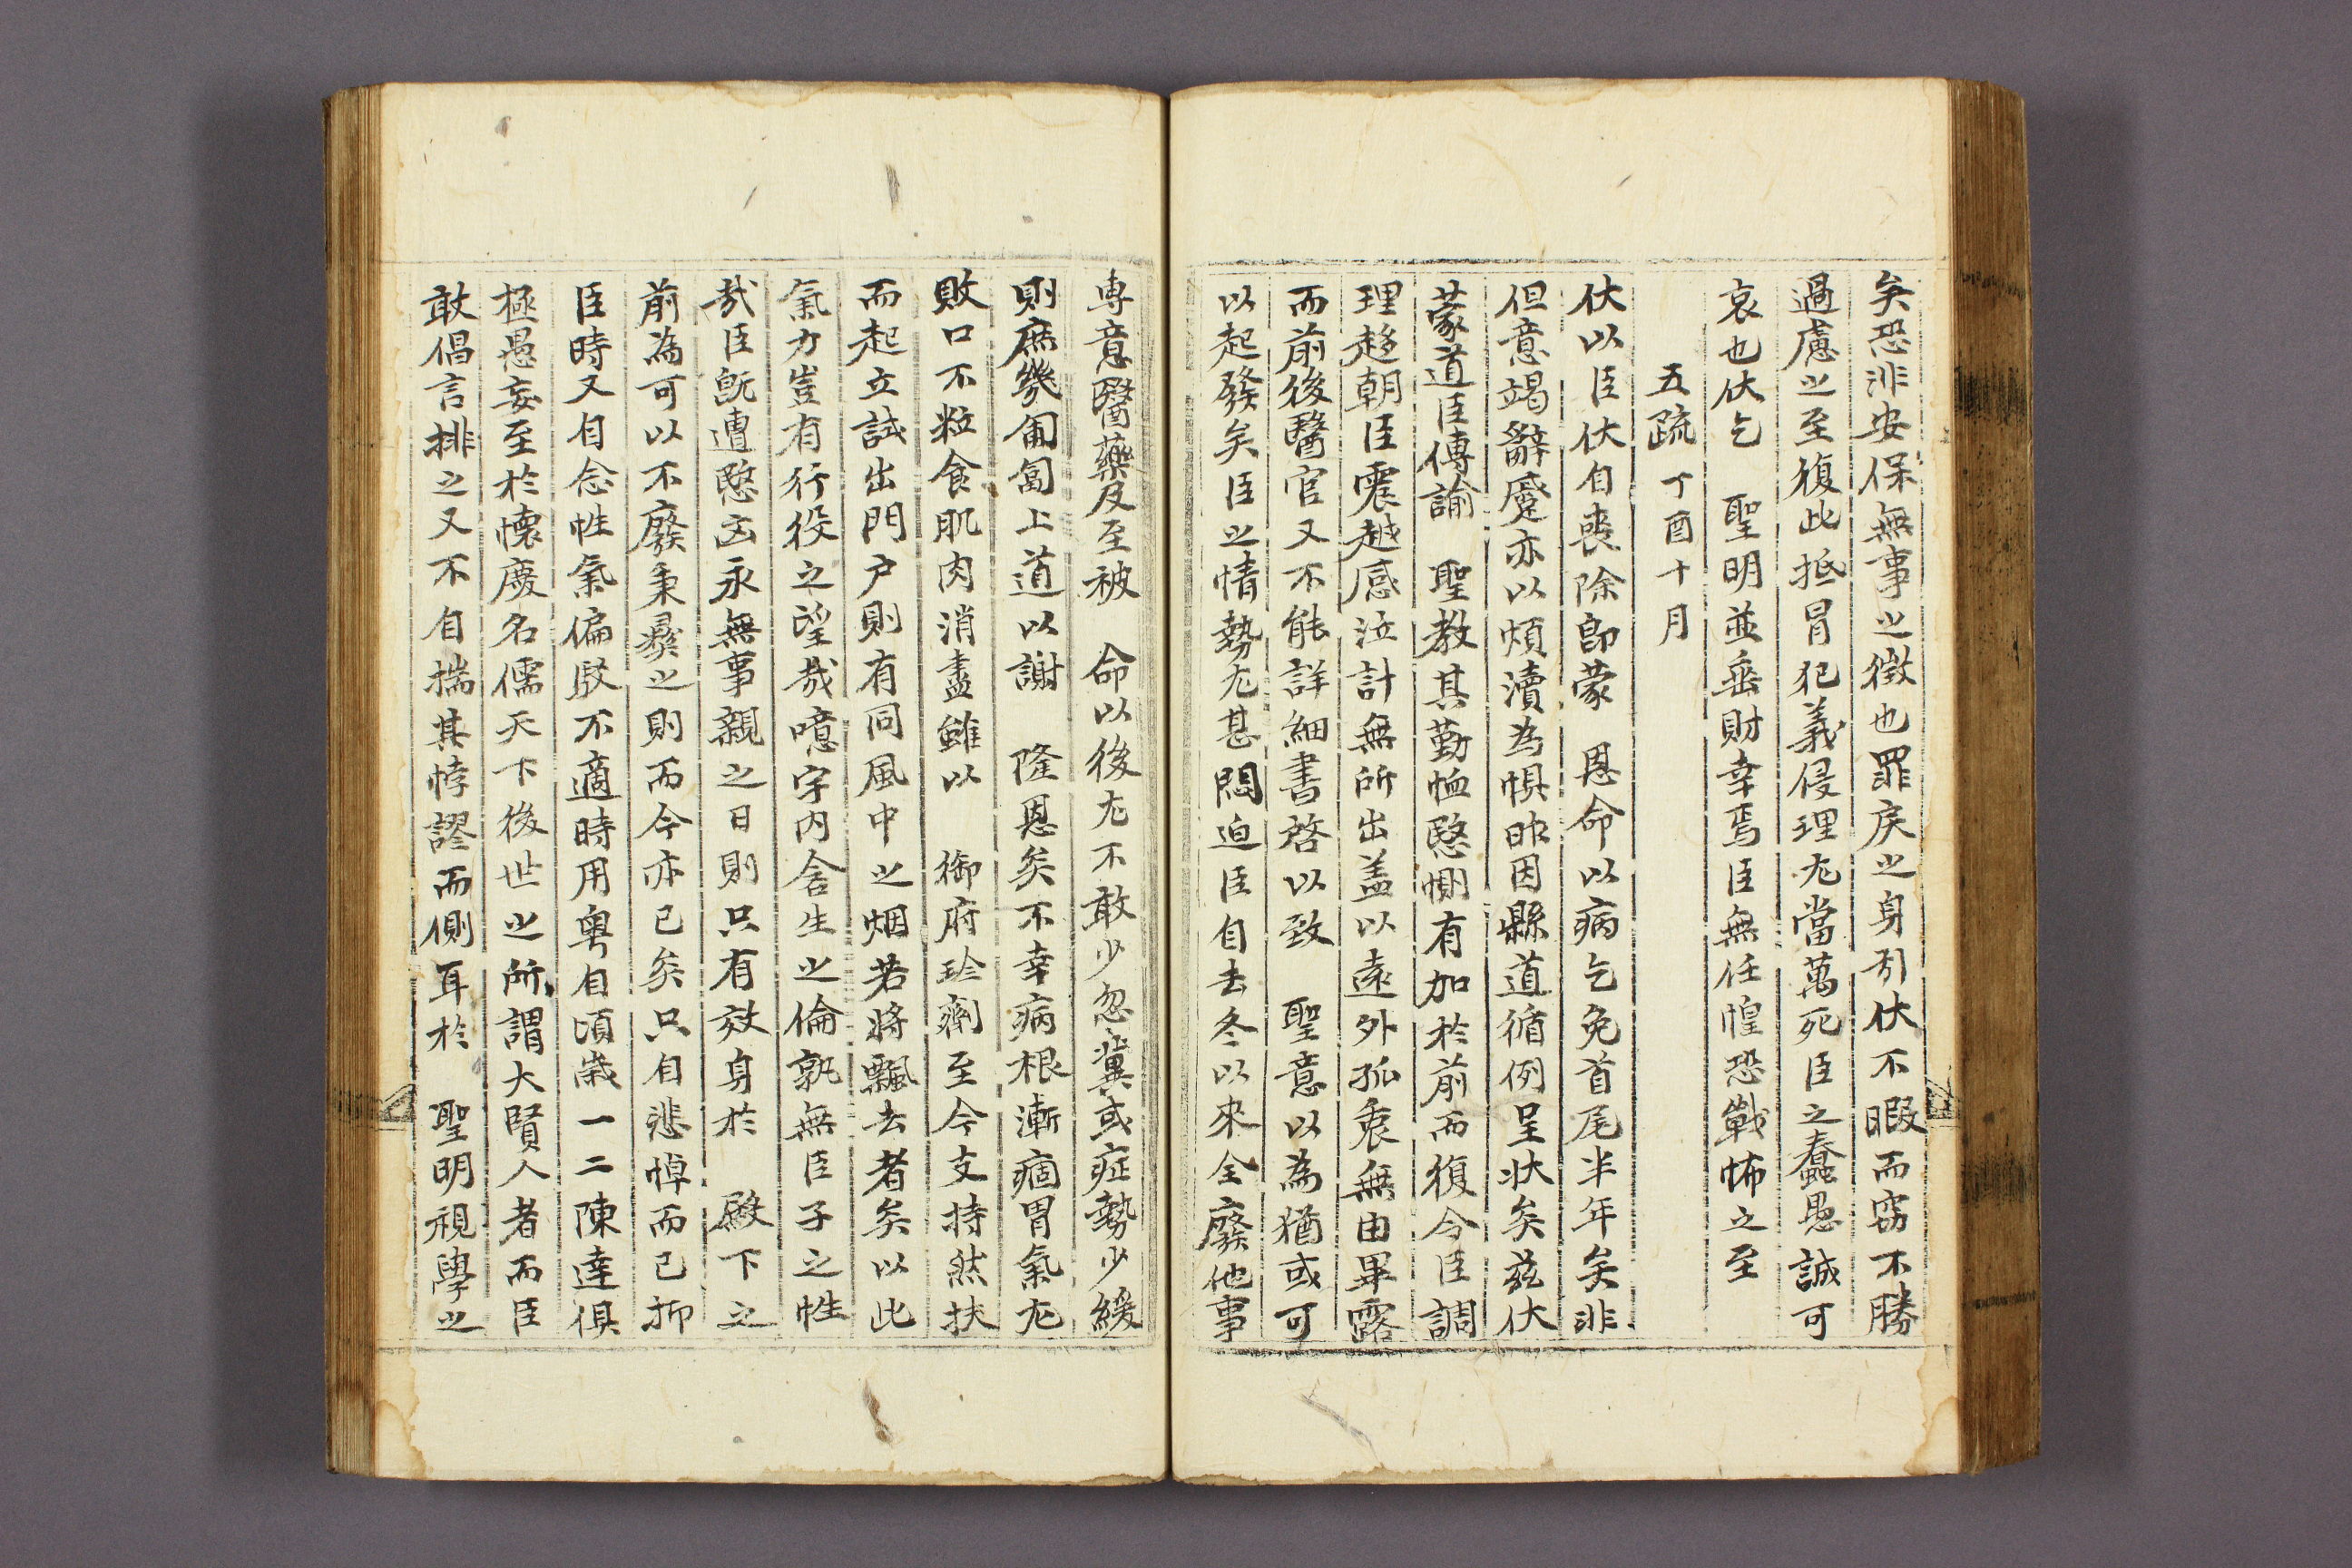 矣恐非安保無事之徵也罪戾之身引伏不暇而窃不勝
過慮之至復此抵冒犯義侵理尤當萬死臣之蠢愚誠可
哀也伏乞 聖明並垂財幸焉臣無任惶恐戰怖之至
五疏 丁酉十月
伏以臣伏自喪除卽蒙 恩命以病乞免首尾半年矣非
但意竭辭蹙亦以煩瀆為惧昨因縣道循例呈狀矣玆伏
蒙道臣傳諭 聖教其勤恤愍惻有加於前而復令臣調
理趍朝臣震越感泣計無所出盖以遠外孤衷無由畢露
而前後醫官又不能詳細書啓以致 聖意以為猶或可
以起發矣臣之情勢尤甚悶迫臣自去冬以來全廢他事
專意醫藥及至被 命以後尤不敢少忽冀或症勢少緩
則庶幾匍匐上道以謝 隆恩矣不幸病根漸痼胃氣尤
敗口不粒食肌肉消盡雖以 御府珍劑至今支持然扶
而起立試出門戶則有同風中之烟若將飄去者矣以此
氣力豈有行役之望哉噫宇內含生之倫孰無臣子之性
哉臣旣遭愍凶永無事親之日則只有效身於 殿下之
前為可以不廢秉彛之則而今亦已矣只自悲悼而已抑
臣時又自念性氣偏駁不適時用粤自頃歲一二陳達俱
極愚妄至於懷慶名儒天下後世之所謂大賢人者而臣
敢倡言排之又不自揣其悖謬而側耳於 聖明視學之